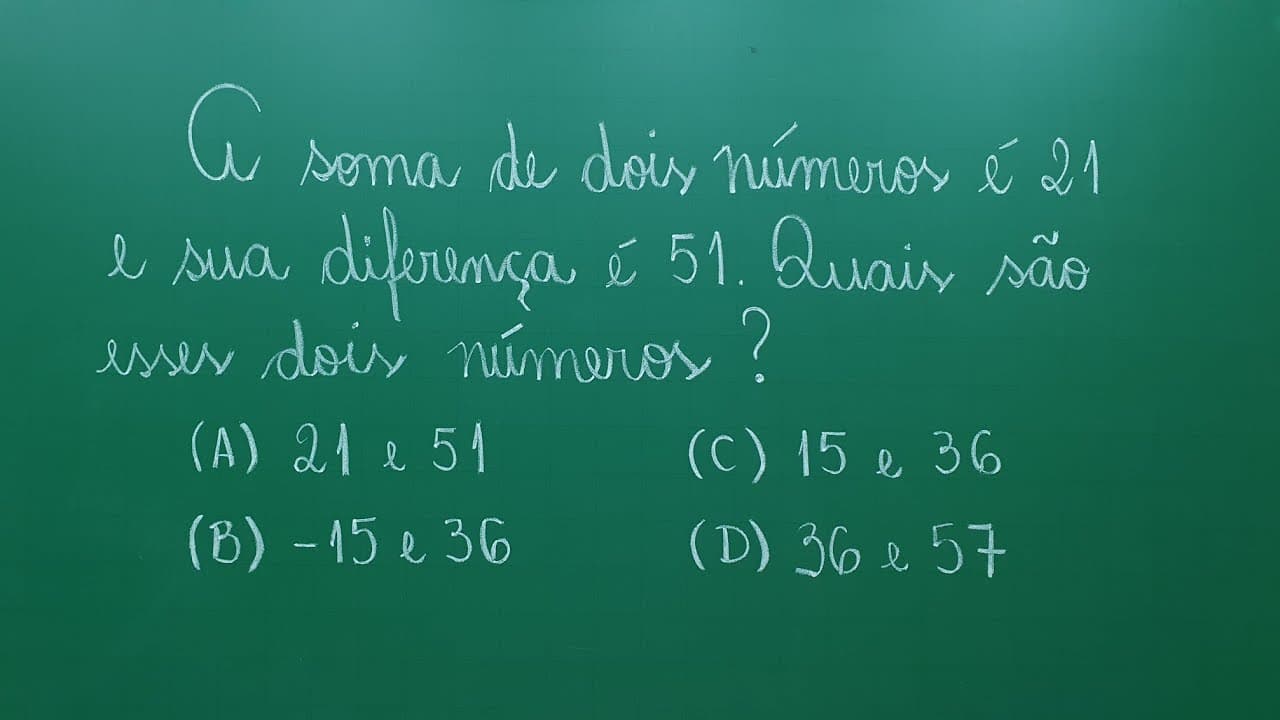 A soma de dois números é 21
e sua diferença é 51. Quais são
esses dois números?
(A) 21 e 51 (C) 15 e 36
(B) -15 e 36 (D) 36 e 57